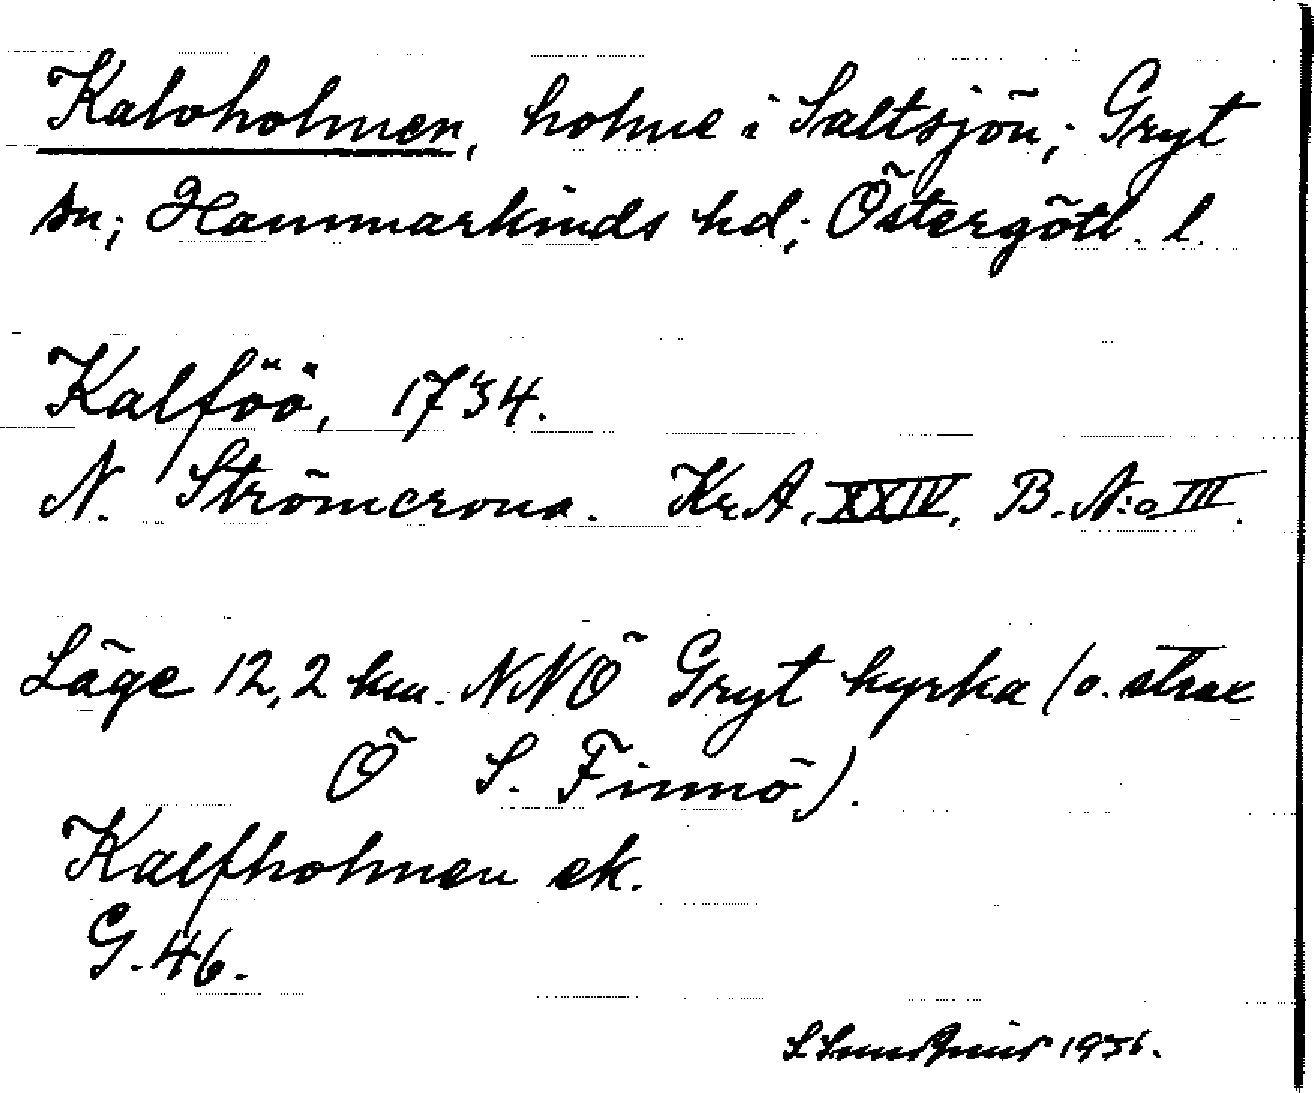 Kalvholmen, holme i Saltsjön; Gryt
sn; Hammarkinds hd; Östergötl. l.
Kalföö, 1734.
N. Strömcrona. Kr.A. XXIV. B. N:o III.
Läge 12,2 km. NNÖ Gryt kyrka (o. strax
Ö S. Finnö).
Kalfholmen ek.
G. 46.
S. 1936.